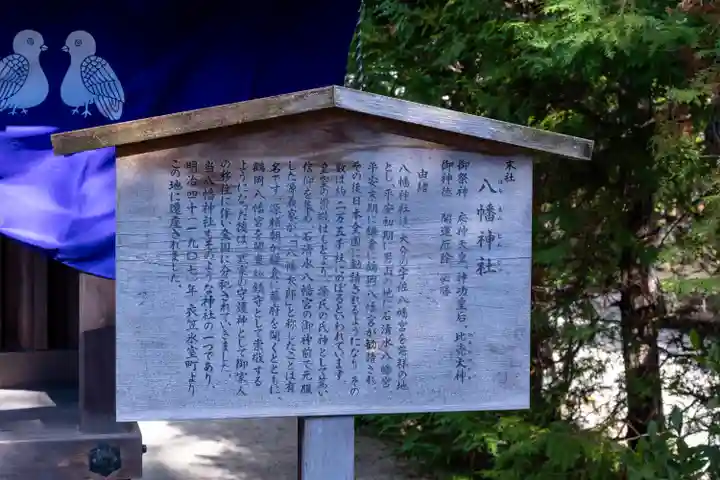 末社
八幡神社
はちまんじんじゃ
御祭神 応神天皇 神功皇后 比売大神
御神徳 開運厄除 必勝
由緒
八幡神社は、大分の宇佐八幡宮を発祥の地
とし、平安初期に男山の地に石清水八幡宮
平安末期に鎌倉に鶴岡八幡宮が勧請され
その後日本全国に勧請されるようになり、その
数は約二万五千社にのぼるといわれています。
皇室の崇敬はもとより、源氏の氏神として篤い
信仰を集め、石清水八幡宮の御神前で元服
した源義家が「八幡太郎」と称したことは有
名です。源頼朝が鎌倉に幕府を開くとともに
鶴岡八幡宮を関東総鎮守として崇敬する
ようになった後は、黒家の守護神として御家人
の移住に伴い全国に分祀されていきました。
当八幡神社もそのような神社の一つであり、
明治四十(一九〇七)年、衣笠氷室町より
この地に遷座されました。